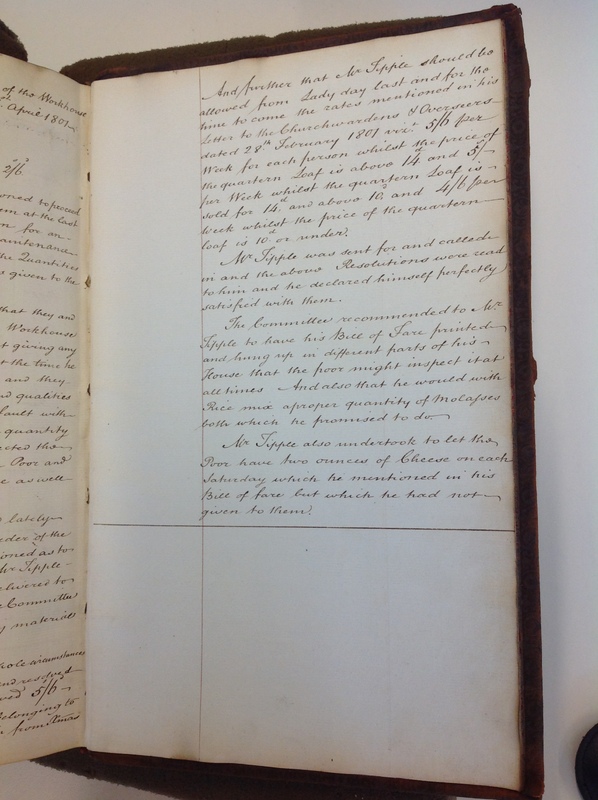 of the Workhouse
April 1801
2/6
oned to proceed
em at the last
n for an
aintenance
he Quantities
s given to the
that they and
Workhouse
t giving any
t the time he
and they
nd qualities
fault with
quantity
ected the
Poor and
e as well
d lately
rder of the
oned as to
Mr Tipple
elivered to
Committee
y materials
hole circumstances
and resolved
ved 5/6
belonging to
from Xmas
And further that Mr Tipple should be
allowed from Lady day last and for the
time to come the rates mentioned in his
Letter to the Churchwardens & Overseers
dated 28th February 1801 viz: 5/6 per
Week for each person whilst the price of
the quartern Loaf is above 14d and 5/-
per Week whilst the quartern Loaf is
sold for 14d and above 10d and 4/6 per
Week whilst the price of the quartern
loaf is 10d or under.
Mr Tipple was sent for and called
in and the above Resolutions were read
to him and he declared himself perfectly
satisfied with them.
The Committee recommended to Mr
Tipple to have his Bill of Fare printed
and hung up in different parts of his
House that the poor might inspect it at
all times And also that he would with
Rice mix a proper quantity of Molasses
both which he promised to do.
Mr Tipple also undertook to let the
Poor have two ounces of Cheese on each
Saturday which he mentioned in his
Bill of fare but which he had not
given to them.